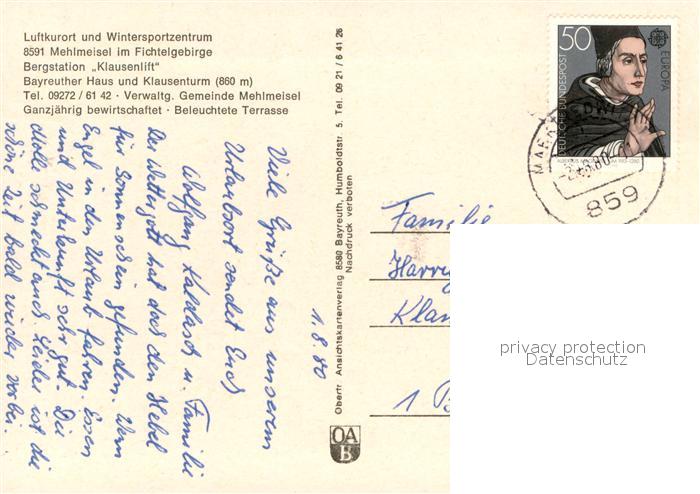 Luftkurort und Wintersportzentrum
8591 Mehlmeisel im Fichtelgebirge
Bergstation „Klausenlift"
Bayreuther Haus und Klausenturm (860 m)
Tel. 09272 / 61 42 · Verwaltg. Gemeinde Mehlmeisel
Ganzjährig bewirtschaftet · Beleuchtete Terrasse
Viele Grüße aus unserem
Urlaubsort sendet Euch
Wolfgang u. Familie
Der Wettergott hat doch den Hebel
für Sonnenschein gefunden. Wenn
Engel in den Urlaub fahren. Essen
und Unterkunft sehr gut. Die
schmeckt auch. Leider ist die
schöne Zeit bald wieder vorbei.
1.8.80
Obertr. Ansichtskartenverlag 8580 Bayreuth, Humboldtstr. 5, Tel. 09 21 / 6 41 26
Nachdruck verboten
OA
B
50
DEUTSCHE BUNDESPOST
EUROPA
CEPT
ALBERTUS MAGNUS 1193-1280
859
Familie
Harry
1 B
privacy protection
Datenschutz